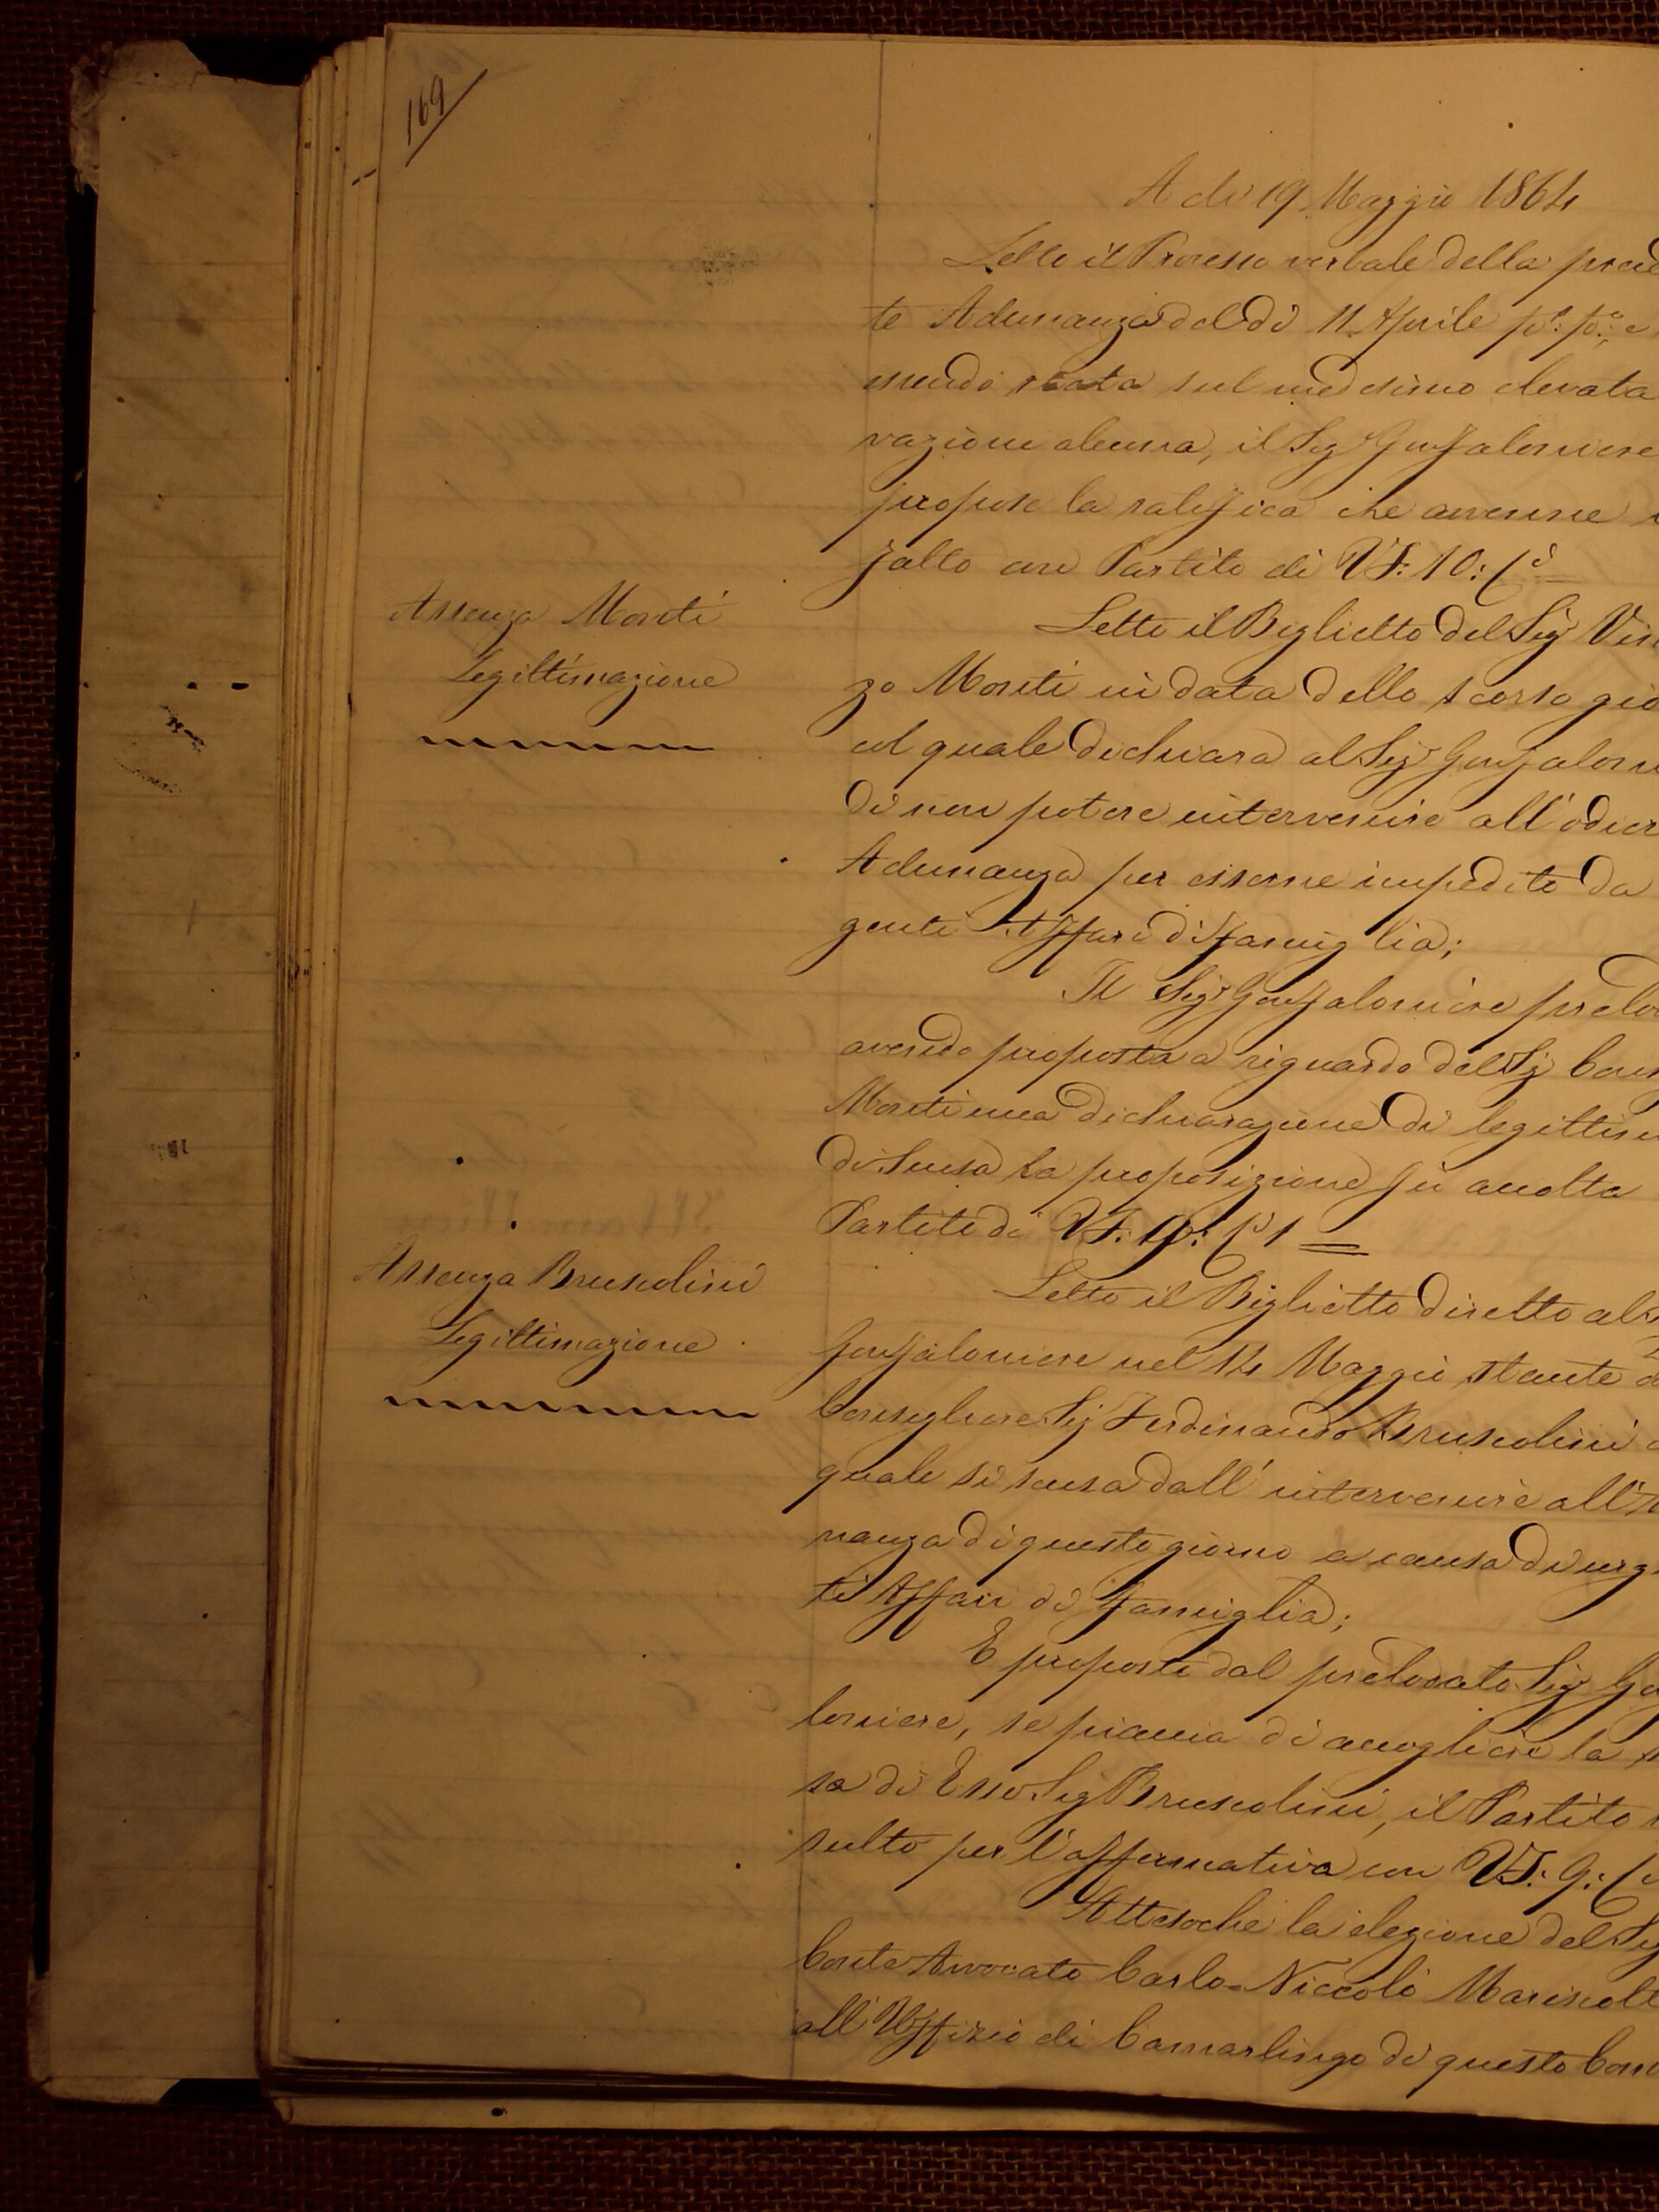 169
A dì 19 Maggio 1864
Letto il Processo verbale della prece
te Adunanza del dì 11 Aprile p.º p.º, e
essendo stata sul medesimo elevata
vazione alcuna, il Sigr Gonfaloniere
propose la ratifica che avvenne
fatto con Partito di VF: 10:
Assenza Monti
Legittimazione
Letto il Biglietto del Sigr Vin
zo Monti in data dello scorso gio
col quale dichiara al Sigr Gonfaloni
di non potere intervenire all'odier
Adunanza per esserne impedito da
genti Affari di famiglia;
Il Sigr Gonfaloniere prelo
avendo proposta a riguardo del Sig Cons
Monti una dichiarazione di legittim
di scusa la proposizione fu accolta
Partito di VF: 9: 1
Assenza Bruscolini
Legittimazione
Letto il Biglietto diretto al
Gonfaloniere nel 14 Maggio stante d
Consigliere Sig Ferdinando Bruscolini
quale si scusa dall'intervenire all'A
nanza di questo giorno a causa di urg
ti Affari di famiglia;
E proposto dal prelodato Sigr Go
loniere, se piaccia di accogliere la s
sa di Esso Sig Bruscolini, il Partito
sultò per l'affermativa con VF: 9:
Attesochè la elezione del Sig
Conte Avvocato Carlo-Niccolò Mariscott
all'Uffizio di Camarlingo di questo Com